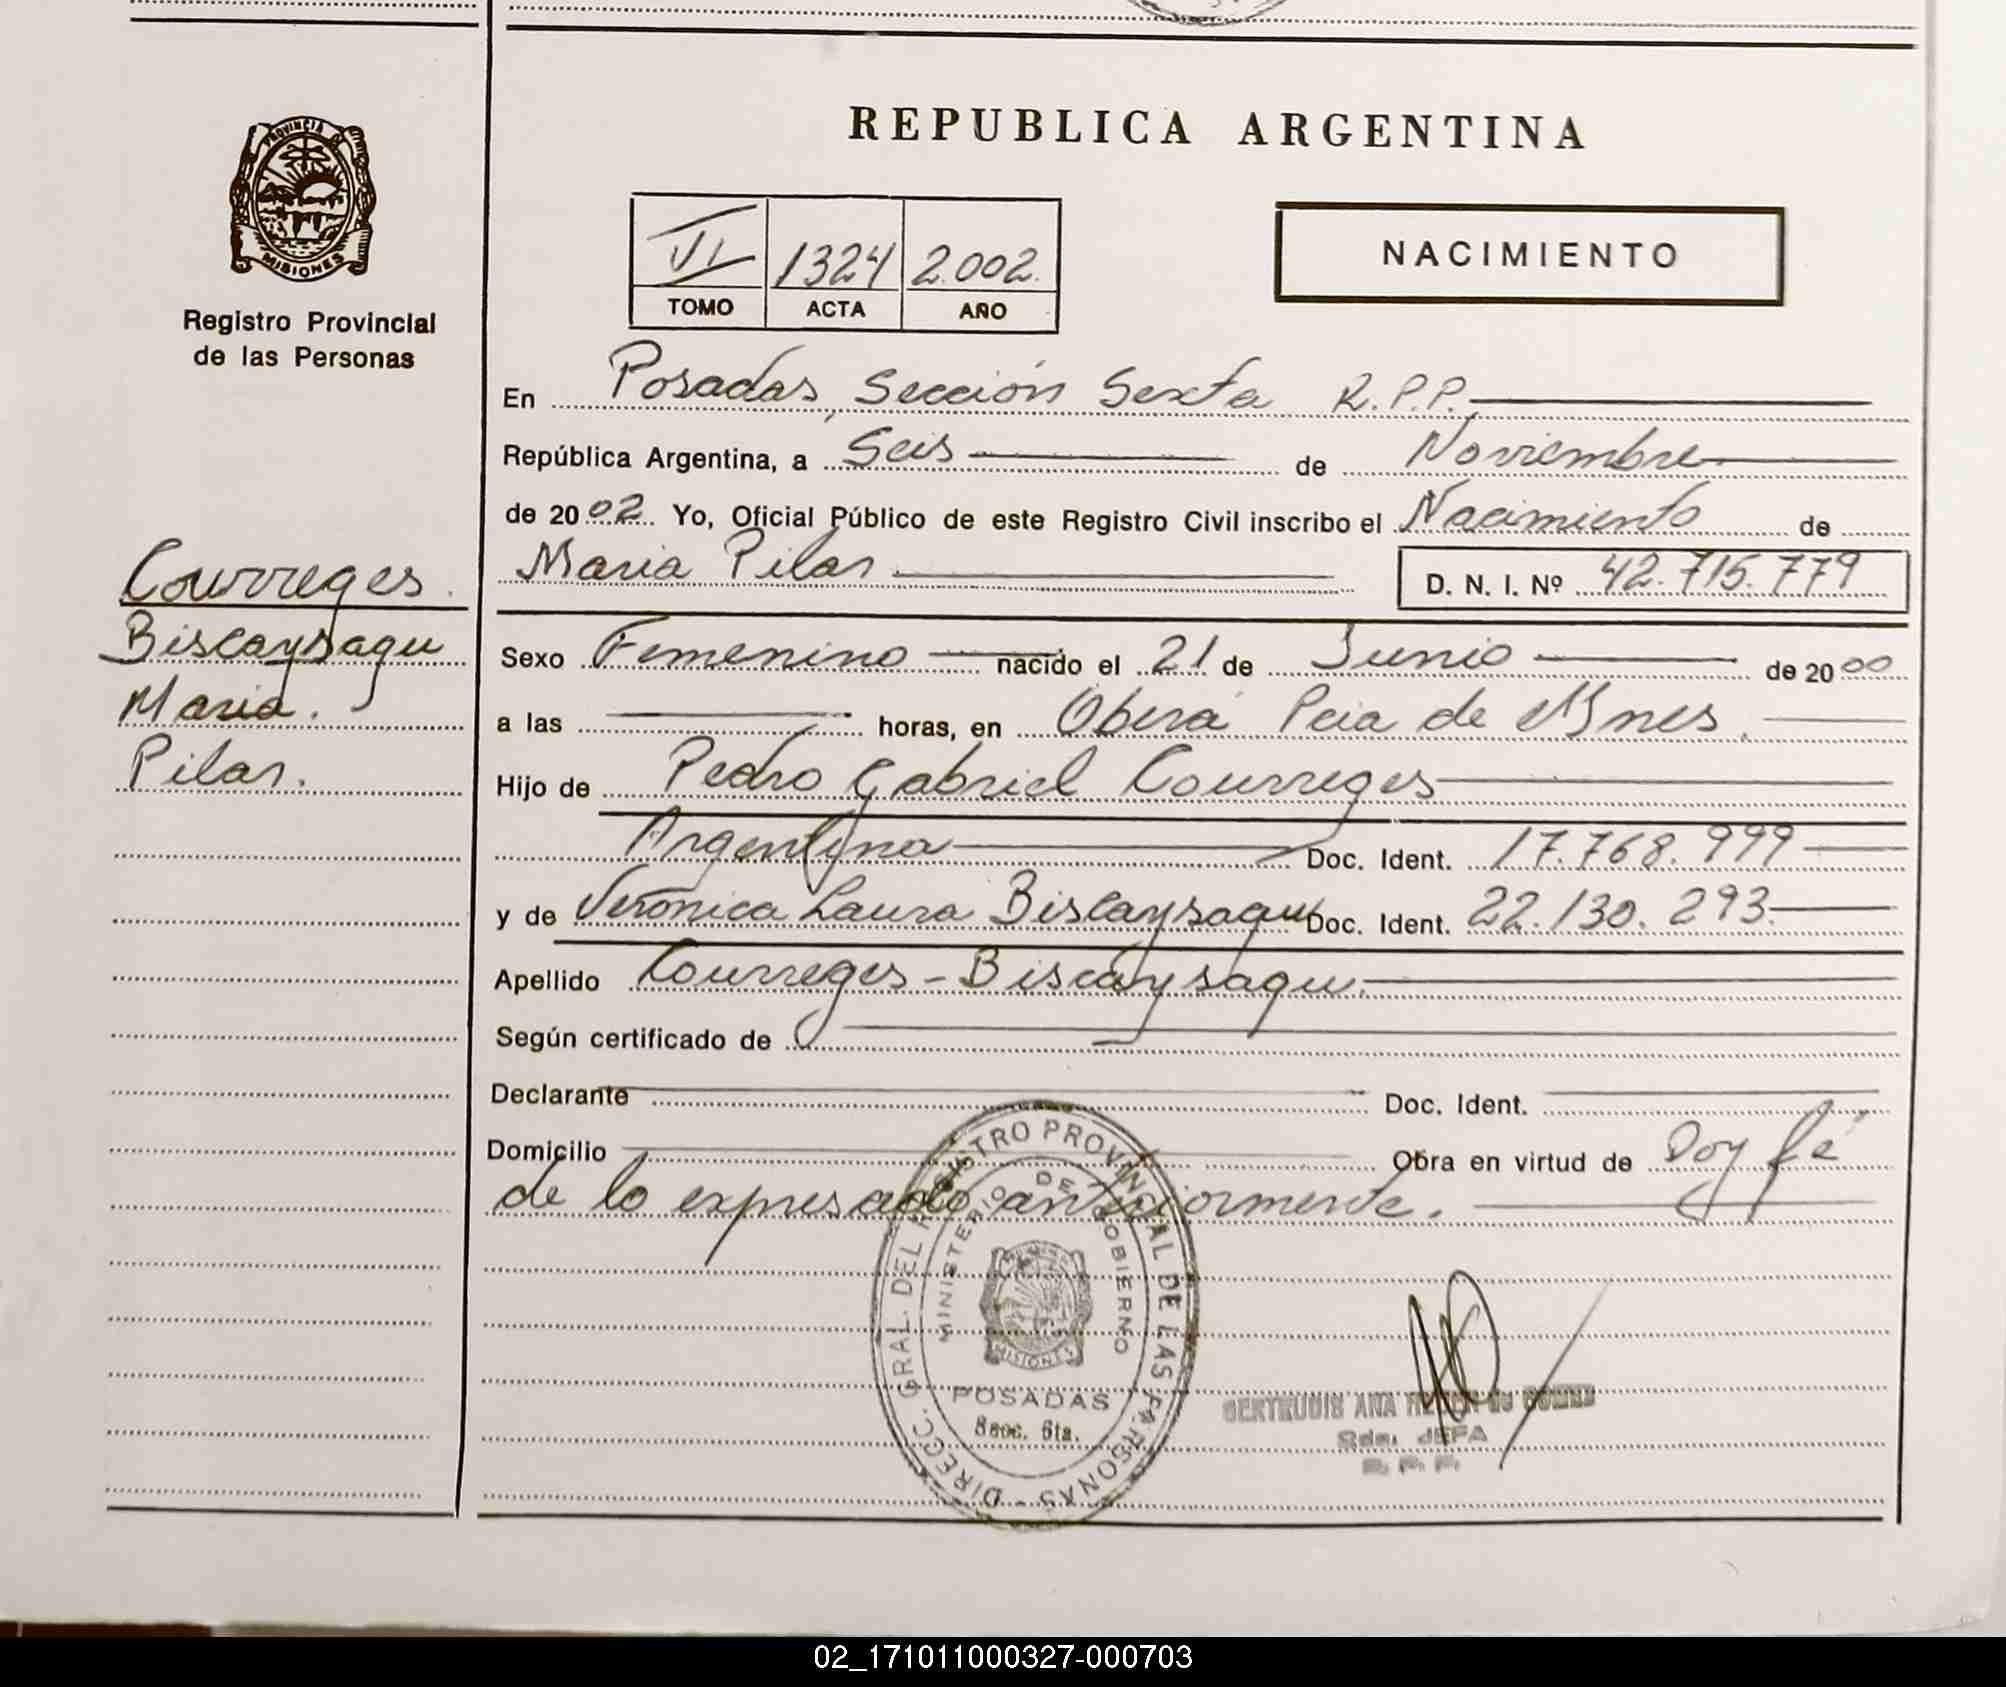 REPUBLICA ARGENTINA
PROVINCIA DE
MISIONES
Registro Provincial
de las Personas
VI 1324 2.002.
TOMO ACTA AÑO
NACIMIENTO
En Posadas, Sección Sexta R.P.P.
República Argentina, a Seis de Noviembre
de 2002. Yo, Oficial Público de este Registro Civil inscribo el Nacimiento de
Maria Pilar D. N. I. Nº 42.715.779
Courreges
Biscaysagu
Maria.
Pilar.
Sexo Femenino nacido el 21 de Junio de 2000
a las horas, en Oberá Pcia de Mnes.
Hijo de Pedro Gabriel Courreges
Argentina Doc. Ident. 17.768.999
y de Verónica Laura Biscaysagu Doc. Ident. 22.130.293.
Apellido Courreges - Biscaysagu.
Según certificado de
Declarante Doc. Ident.
Domicilio Obra en virtud de Doy fé
de lo expresado anteriormente.
DIRECC. GRAL. DEL REGISTRO PROVINCIAL DE LAS PERSONAS
MINISTERIO DE GOBIERNO
MISIONES
POSADAS
Secc. 6ta.
GERTRUDIS ANA
JEFA
R. P. P.
02_171011000327-000703